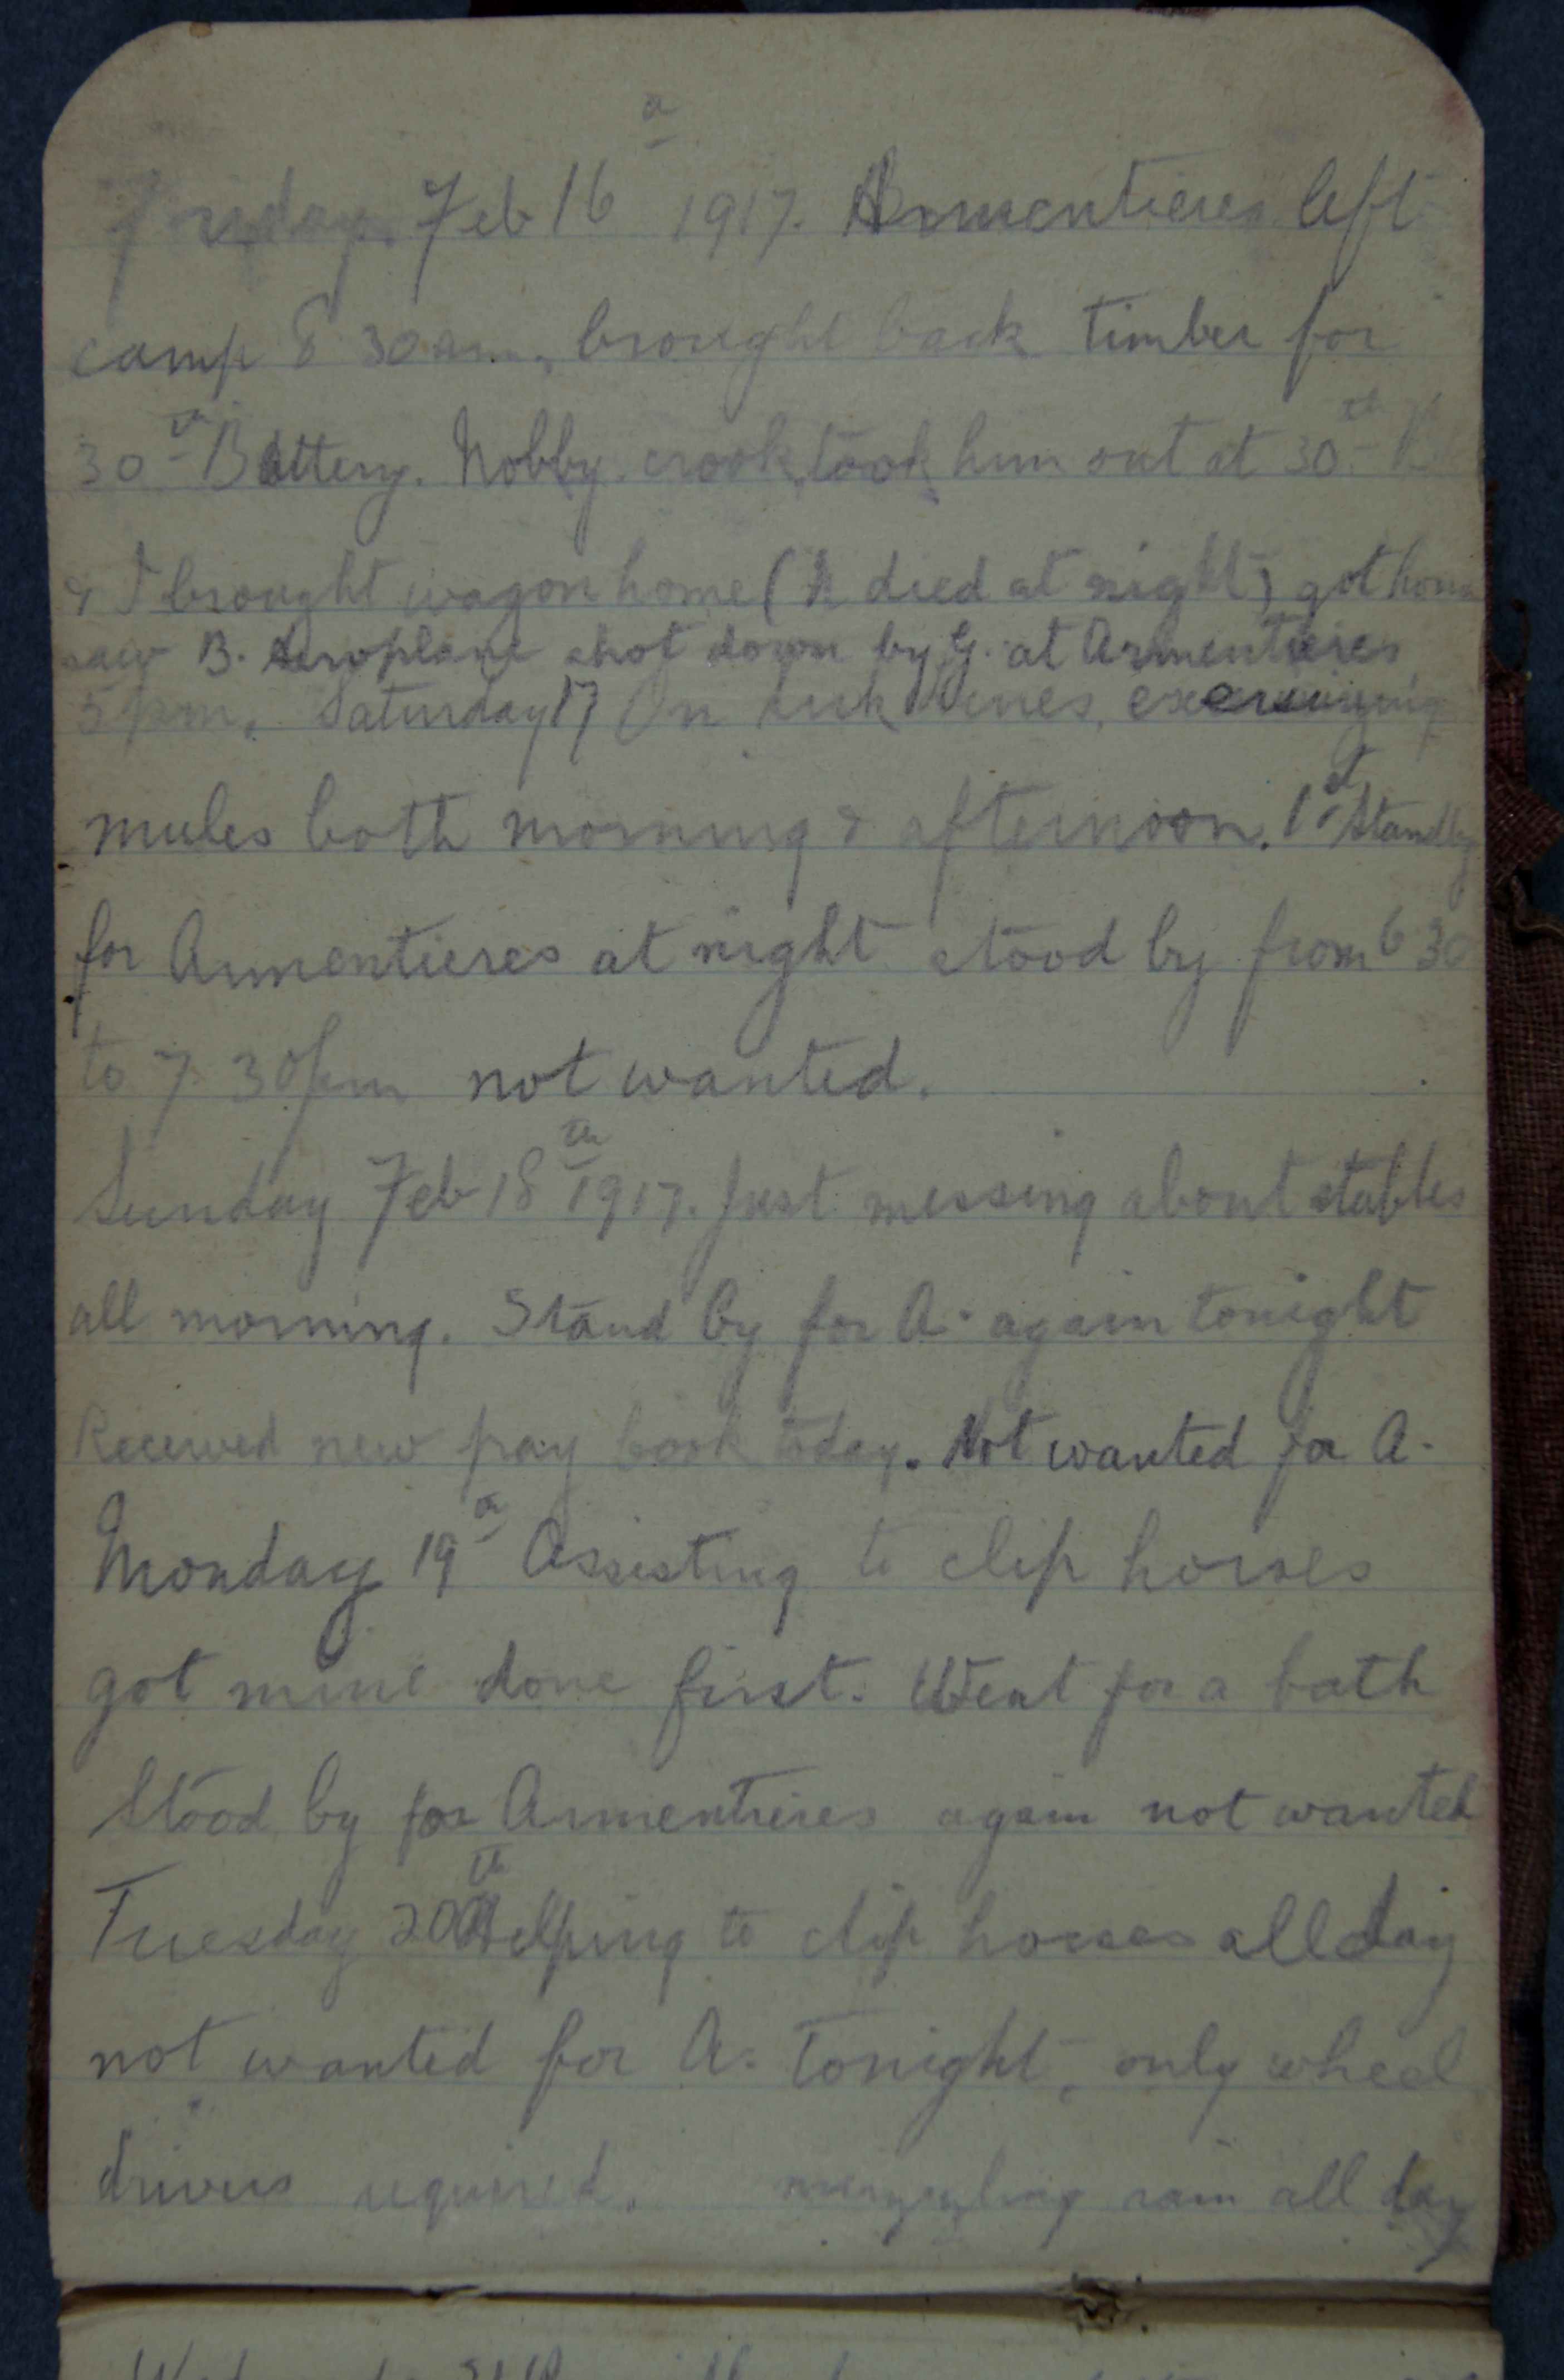 Friday Feb 16th 1917. Armentieres left
camp 8 30am, brought back timber for
30th Battery. Nobby crook took him out at 30th
& I brought wagon home (N died at night) got home
saw B. Aeroplane shot down by G. at Armentieres
5pm. Saturday 17 On lines, exercising
mules both morning & afternoon. 1st Standby
for Armentieres at night stood by from 6 30
to 7. 30pm not wanted.
Sunday Feb 18th 1917. Just messing about stables
all morning. Stand by for A. again tonight
Received new pay book today. Not wanted for A.
Monday 19th Assisting to clip horses
got mine done first. Went for a bath
Stood by for Armentieres again not wanted
Tuesday 20th Helping to clip horses all day
not wanted for A. Tonight, only wheel
drivers required. rain all day